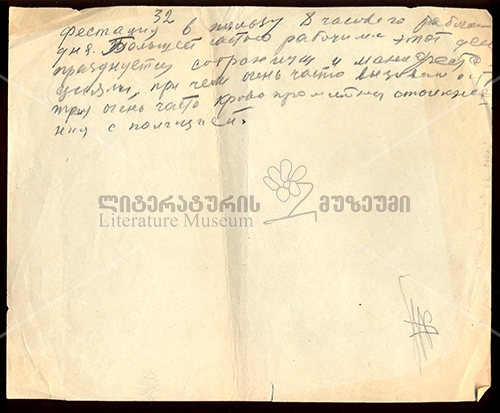 32
фестация в пользу 8 часового рабочего
дня. Большей частью рабочими этот день
празднуется и манифеста
циями, при чем очень часто вызывают
очень часто кровопролитна столкнове
ния с полицией.
ლიტერატურის მუზეუმი
Literature Museum